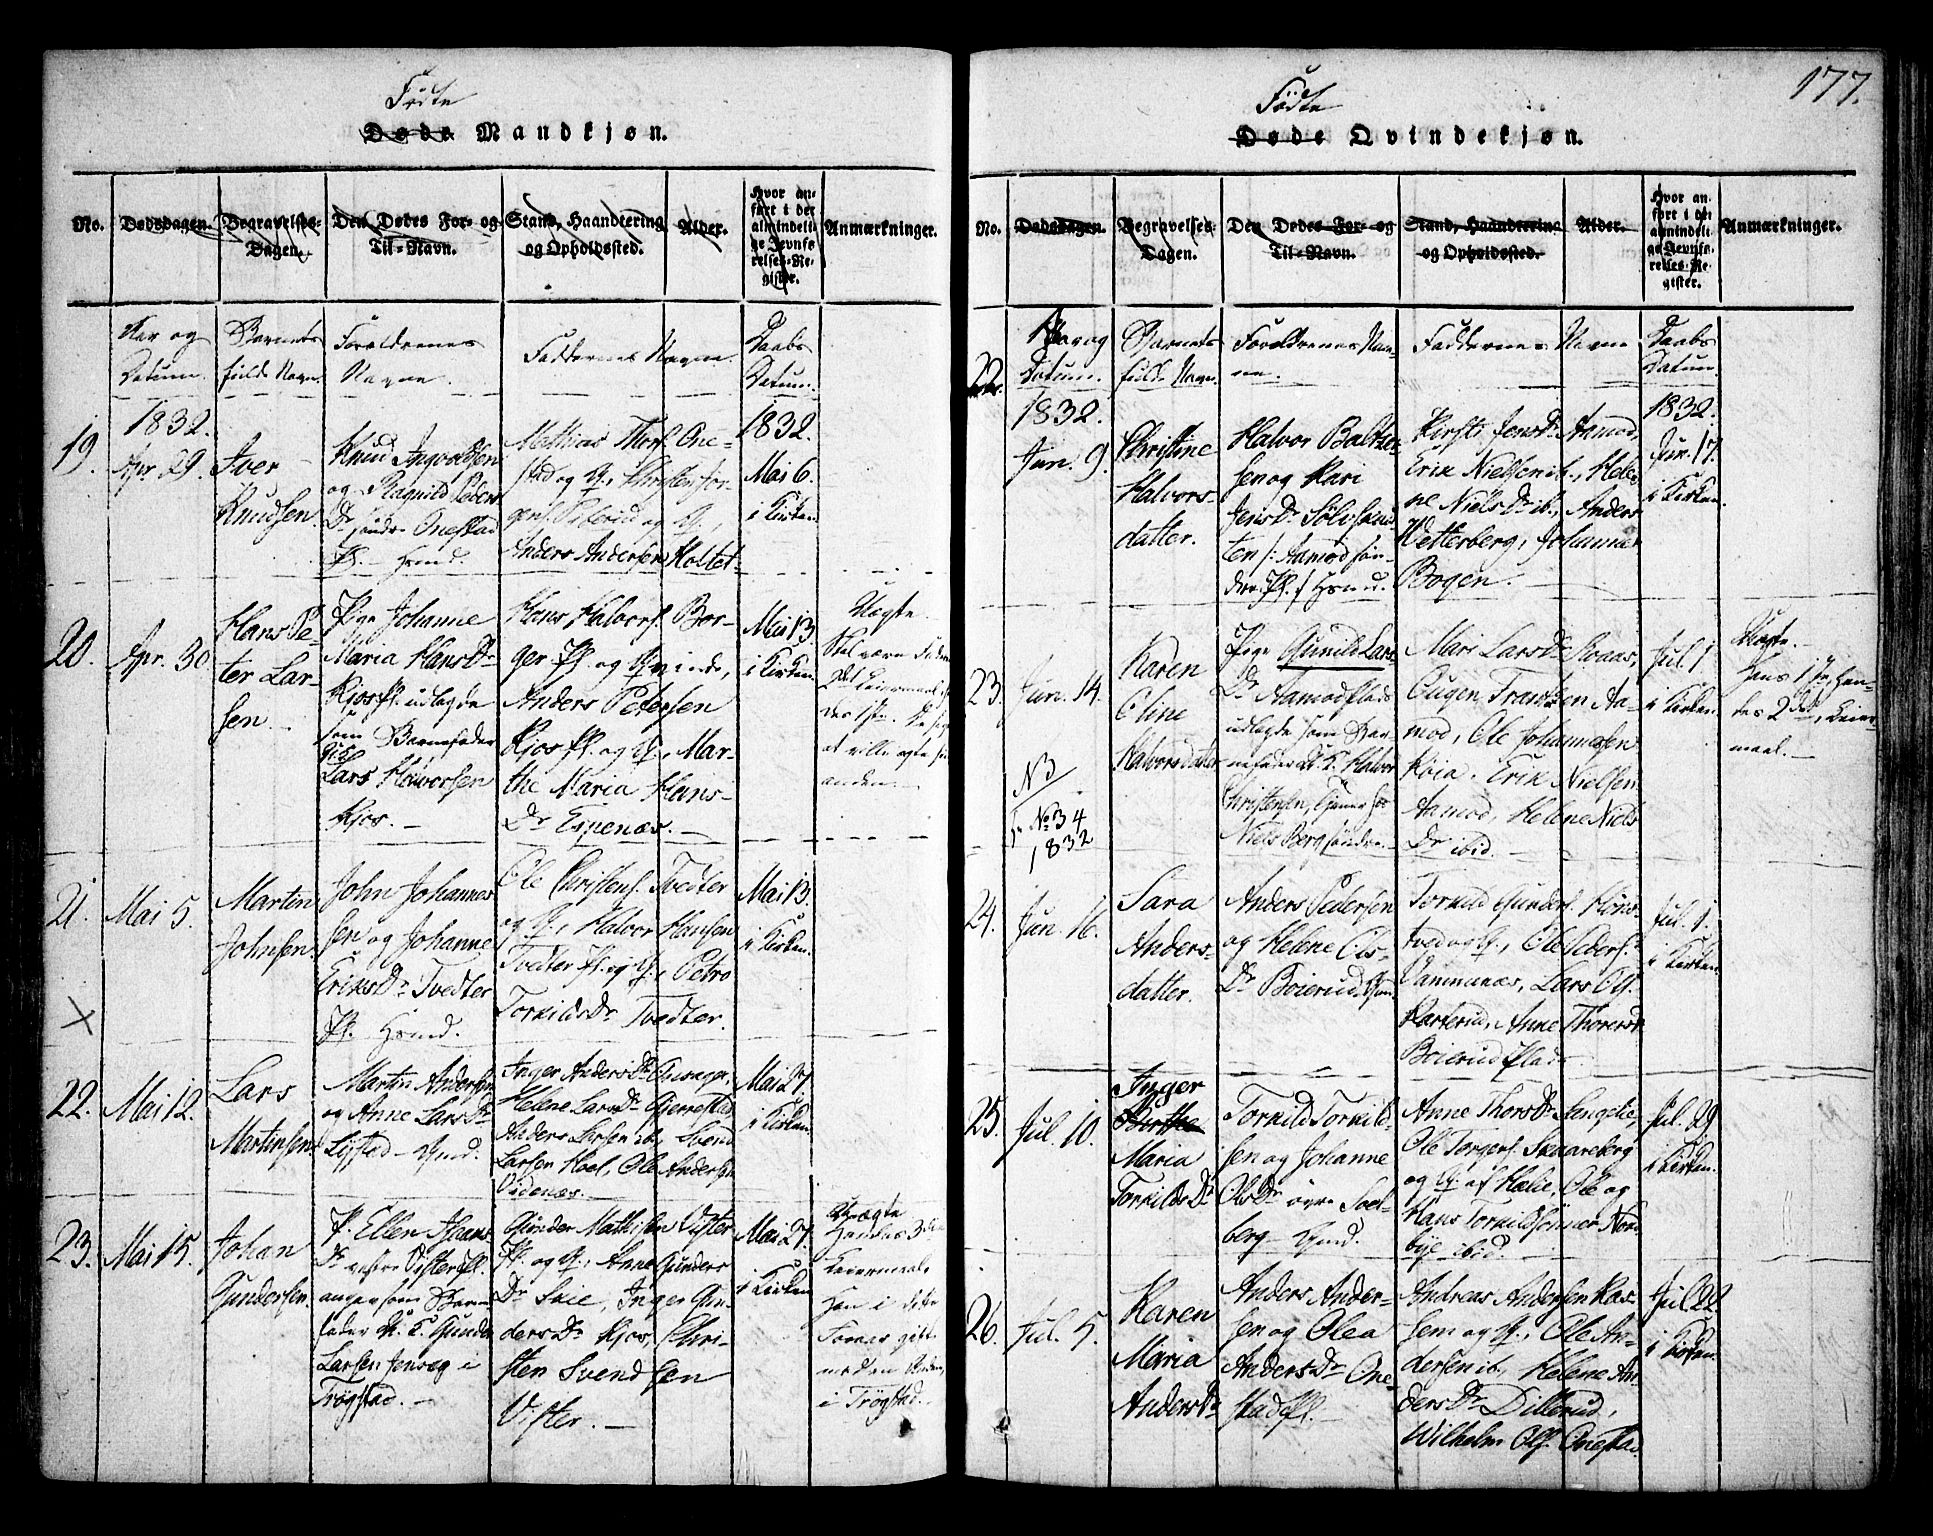 177.
Fødte
Døde Mandkjøn.
No.
Dødsdagen.
Begravelses-
Dagen.
Den Dødes For- og
Til-Navn.
Stand, Haandtering
og Opholdssted.
Alder.
Hvor an-
ført i det
almindeli-
ge Jevnfø-
relses-Re-
gister.
Anmærkninger.
Aar og
Datum.
Barnets
fulde Navn.
Forældrenes
Navne.
Faddernes Navne.
Daabs
Datum.
19.
1832.
Apr. 29.
Iver
Knudsen.
Knud Ingvoldsen
og Ragnild Peders
Dr søndre Onestad
Pl. - Hsmd.
Mathias Thors. One-
stad og Q., Christen Jor-
gens. og Q.,
Anders Andersen Holtet
1832.
Mai 6.
i Kirken.
20.
Apr. 30.
Hans Pe-
ter Lar-
sen
Pige Johanne
Maria Hans Dr
Kjos Pl. udlagde
som Barnefader
Lars Halvorsen
Kjos. -
Hans Halvors. Bor-
ger Pl. og Qvinde,
Anders Petersen
Kjos Pl. og Q., Mar-
the Maria Hans-
Dr Espenæs. -
Mai 13.
i Kirken.
Uægte.
at ville ægte hin
anden. -
21.
Mai 5.
Martin
Johnsen.
John Johannes
sen og Johanne
Eriks Dr Tvedter
Pl. Hsmd.
Ole Christens. Tvedter
og Q., Halvor Hansen
Tvedter Pl. og Q., Petro
Torkilds Dr Tvedter.
Mai 13.
i Kirken.
22.
Mai 12.
Lars
Martinsen
Martin Andersen
og Anne Lars Dr
Inger Anders Dr
Helene Lars Dr Gjerrestad
Anders Larsen ib., Svend
Larsen Hoel, Ole Andersen
Videnæs. -
Mai 27.
i Kirken.
23.
Mai 15.
Johan
Gundersen.
P. Ellen
Dr vestre Vister Pl.
angav som Bar-
fader U. K. Gunder
Larsen i
Trøgstad. -
Gunder Mathisen Vister
Pl. og Q., Anne Gunders
Dr Skie, Inger Gun-
ders Dr Kjos, Chri-
sten Svendsen
Vister. -
Mai 27.
i Kirken
Uægte
Hendes 3die
Leiermaal.
Han i
gift
i Trøgstad.
Fødte
Døde Qvindekjøn.
No.
Dødsdagen.
Begravelses-
Dagen.
Den Dødes For- og
Til-Navn.
Stand, Haandtering
og Opholdssted.
Alder.
Hvor an-
ført i det
almindeli-
ge Jevnfø-
relses-Re-
gister.
Anmærkninger.
Aar og
Datum.
Barnets
fulde Navn.
Forældrenes Nav-
ne.
Faddernes Navne
Daabs
Datum.
22.
1832.
Jun. 9.
Christine
Halvors-
datter.
Halvor Baltzer
sen og Kari
Jens Dr Sølvskuds
ten /: Aamod søn-
dre Pl. :/ Hsmd.
Kirsti Jens Dr Aamod,
Erik Nielsen ib., Hele-
ne Niels Dr ib., Anders
Wetterberg, Johannes
Bogen. -
1832.
Jun. 17.
i Kirken.
23.
Jun. 14.
N3
No 34
1832
Karen
Oline
Halvorsdatter
Pige Gunild Lars
Dr Aamod Plads
udlagde som Bar-
nefader U. K. Halvor
Christensen, tjener hos
Niels Berg søndre. -
Mari Lars Dr
Eugen Frantzen Aa-
mod, Ole Johannesen
Köia. Erik Nielsen
Aamod, Helene Niels
Dr ibid. -
Jul. 1
i Kirken
Uægte. -
Hans 1ste, Hen-
des 2det Leier-
maal. -
24.
Jun. 16.
Sara
Anders-
datter.
Anders Pedersen
og Helene Ols-
Dr Boierud. Gmd.
Torkild Gunders. Höns-
tved og Q., Ole Peders.
Vammenæs, Lars Ols.
Karterud, Anne Thorers Dr
Boierud Plads
Jul. 1.
i Kirken.
25.
Jul. 10.
Inger
Berthe
Maria
Torkilds Dr
Torkild Torkild-
sen og Johanne
Ols Dr øvre Soel-
berg - Gmd.
Anne Thors Dr
Ole Torgers. Skaareberg
og Q. af Hælie, Ole og
Hans Torkildsönner Nor-
bye ibid. -
Jul. 29
i Kirken.
26.
Jul. 5.
Karen
Maria
Anders Dr
Anders Ander-
sen og Olea
Anders Dr One-
stad Pl. -
Andreas Andersen Kas-
sem og Q., Ole An-
dersen ib., Helene An-
ders Dr Dillerud,
Wilhelm Ols. Onestad.
Jul. 22
i Kirken.